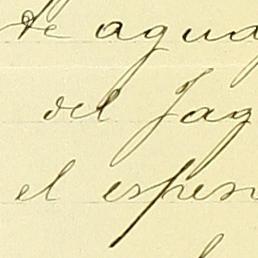 de agua
del Jag
el espes